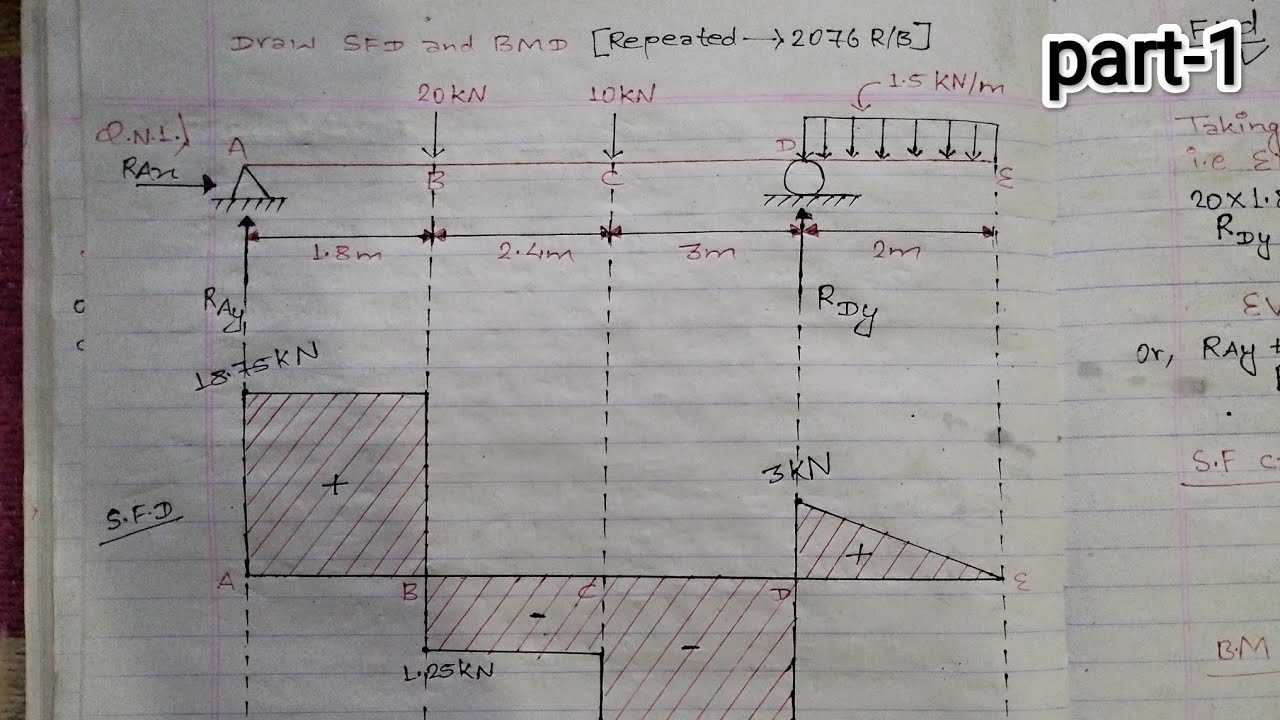 Draw SFD and BMD [Repeated → 2076 R/B]
part-1
20KN 10KN 1.5 KN/m
Q.N.1.)
A D
RAx
B C E
1.8m 2.4m 3m 2m
RAy RDy
18.75KN
+
3KN
S.F.D
+
A B C D E
- -
1.25KN
Taking
i.e
20×1.8
RDy
Or, RAy +
S.F
B.M